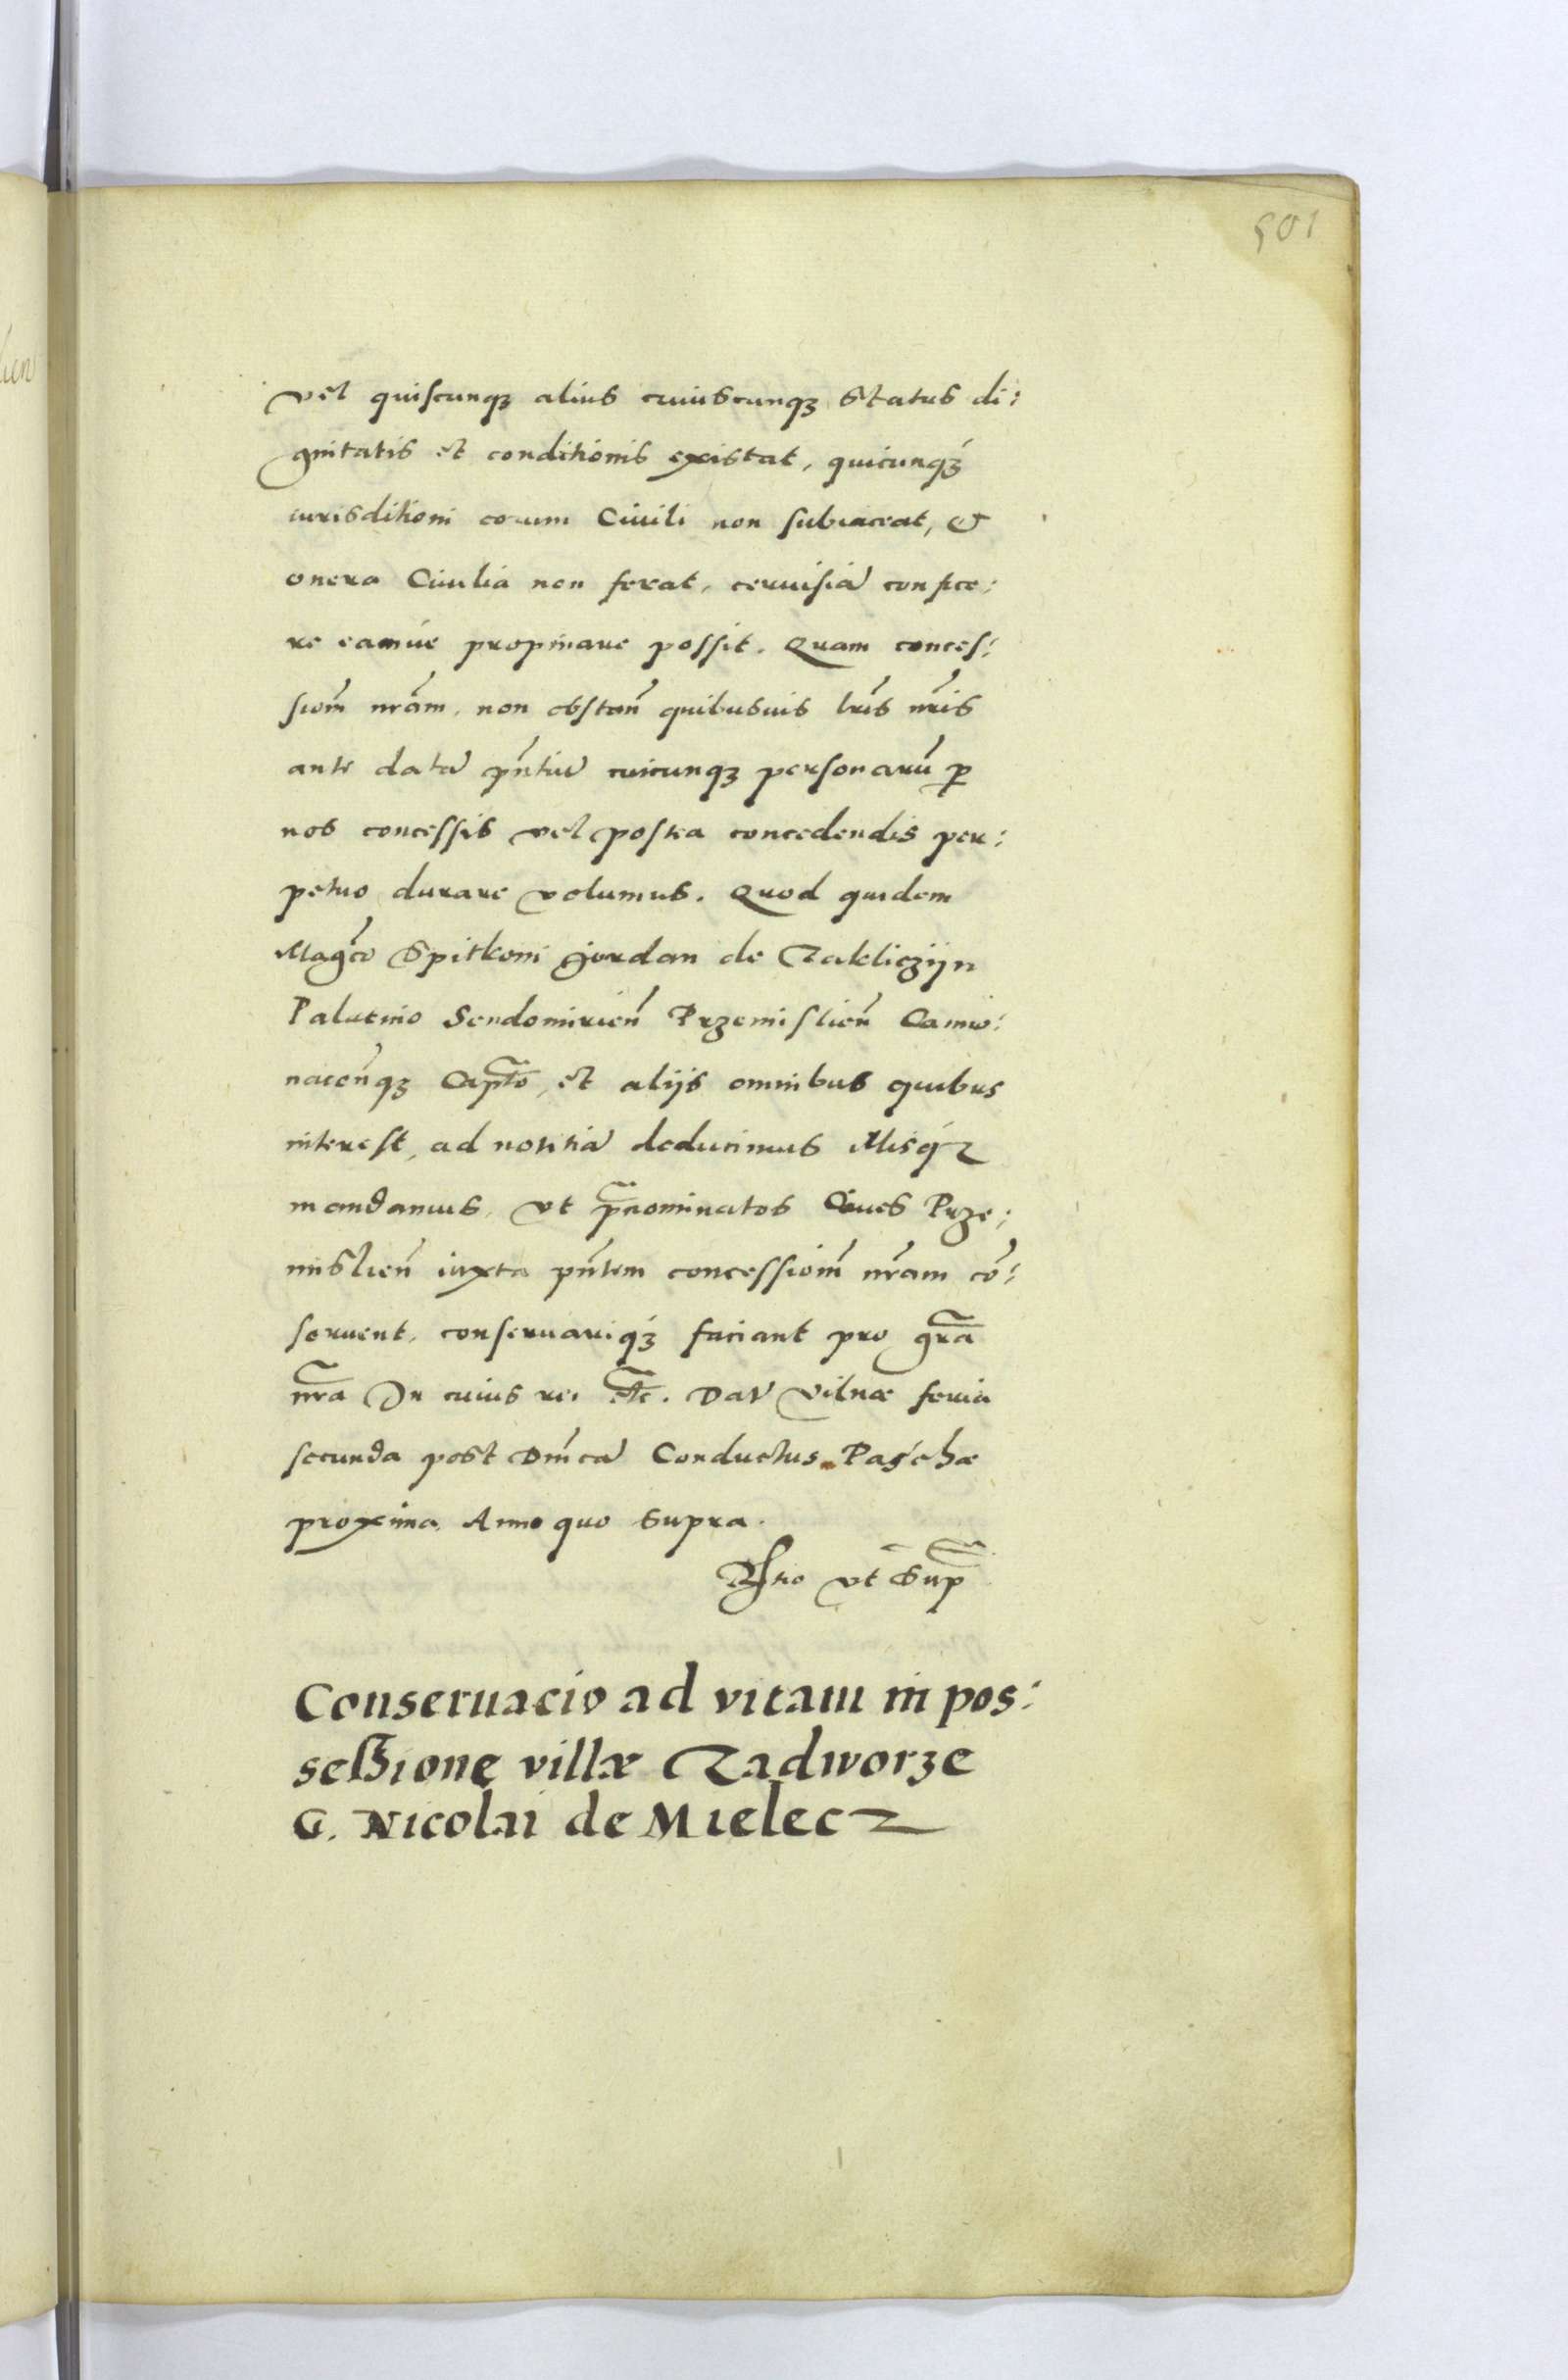 501
vel quiscunqꝫ alius cuiuscunqꝫ status di:
gnitatis et conditionis existat, quicunqꝫ
iurisditioni eorum Ciuili non subiaceat, &
onera Ciuilia non ferat, ceruisiā confice:
re eamúe propinare possit. Quam conces:
siom̄ nr̄am, non obstan̄ quibusuis lr̄is nr̄is
ante datā pn̄tiū cuicunqꝫ personarū ꝑ
nos concessis vel postea concedendis per:
petuo durare volumus. Quod quidem
Magc̄o Spitkoni Jordan de Zakliczijn
Palatino Sendomirien̄ Przemislien̄ Camio:
nacen̄qꝫ Capt̄o, et alijs omnibus quibus
interest, ad notitiā deducimus illisqꝫ
mandamus, vt p̄nominatos Ciues Prze:
mislien̄ iuxta pn̄tem concessiom̄ nr̄am cō:
seruent, conseruariqꝫ faciant pro gr̄a
nr̄a In cuius rei etc̄. Dat̄ Vilnæ feria
secunda post Dm̄cā Conductus Paschæ
proxima, Anno quo supra.
vt sup̄
Conseruacio ad vitam in pos:
seßione villæ Zadworze
G. Nicolai de Mielecz